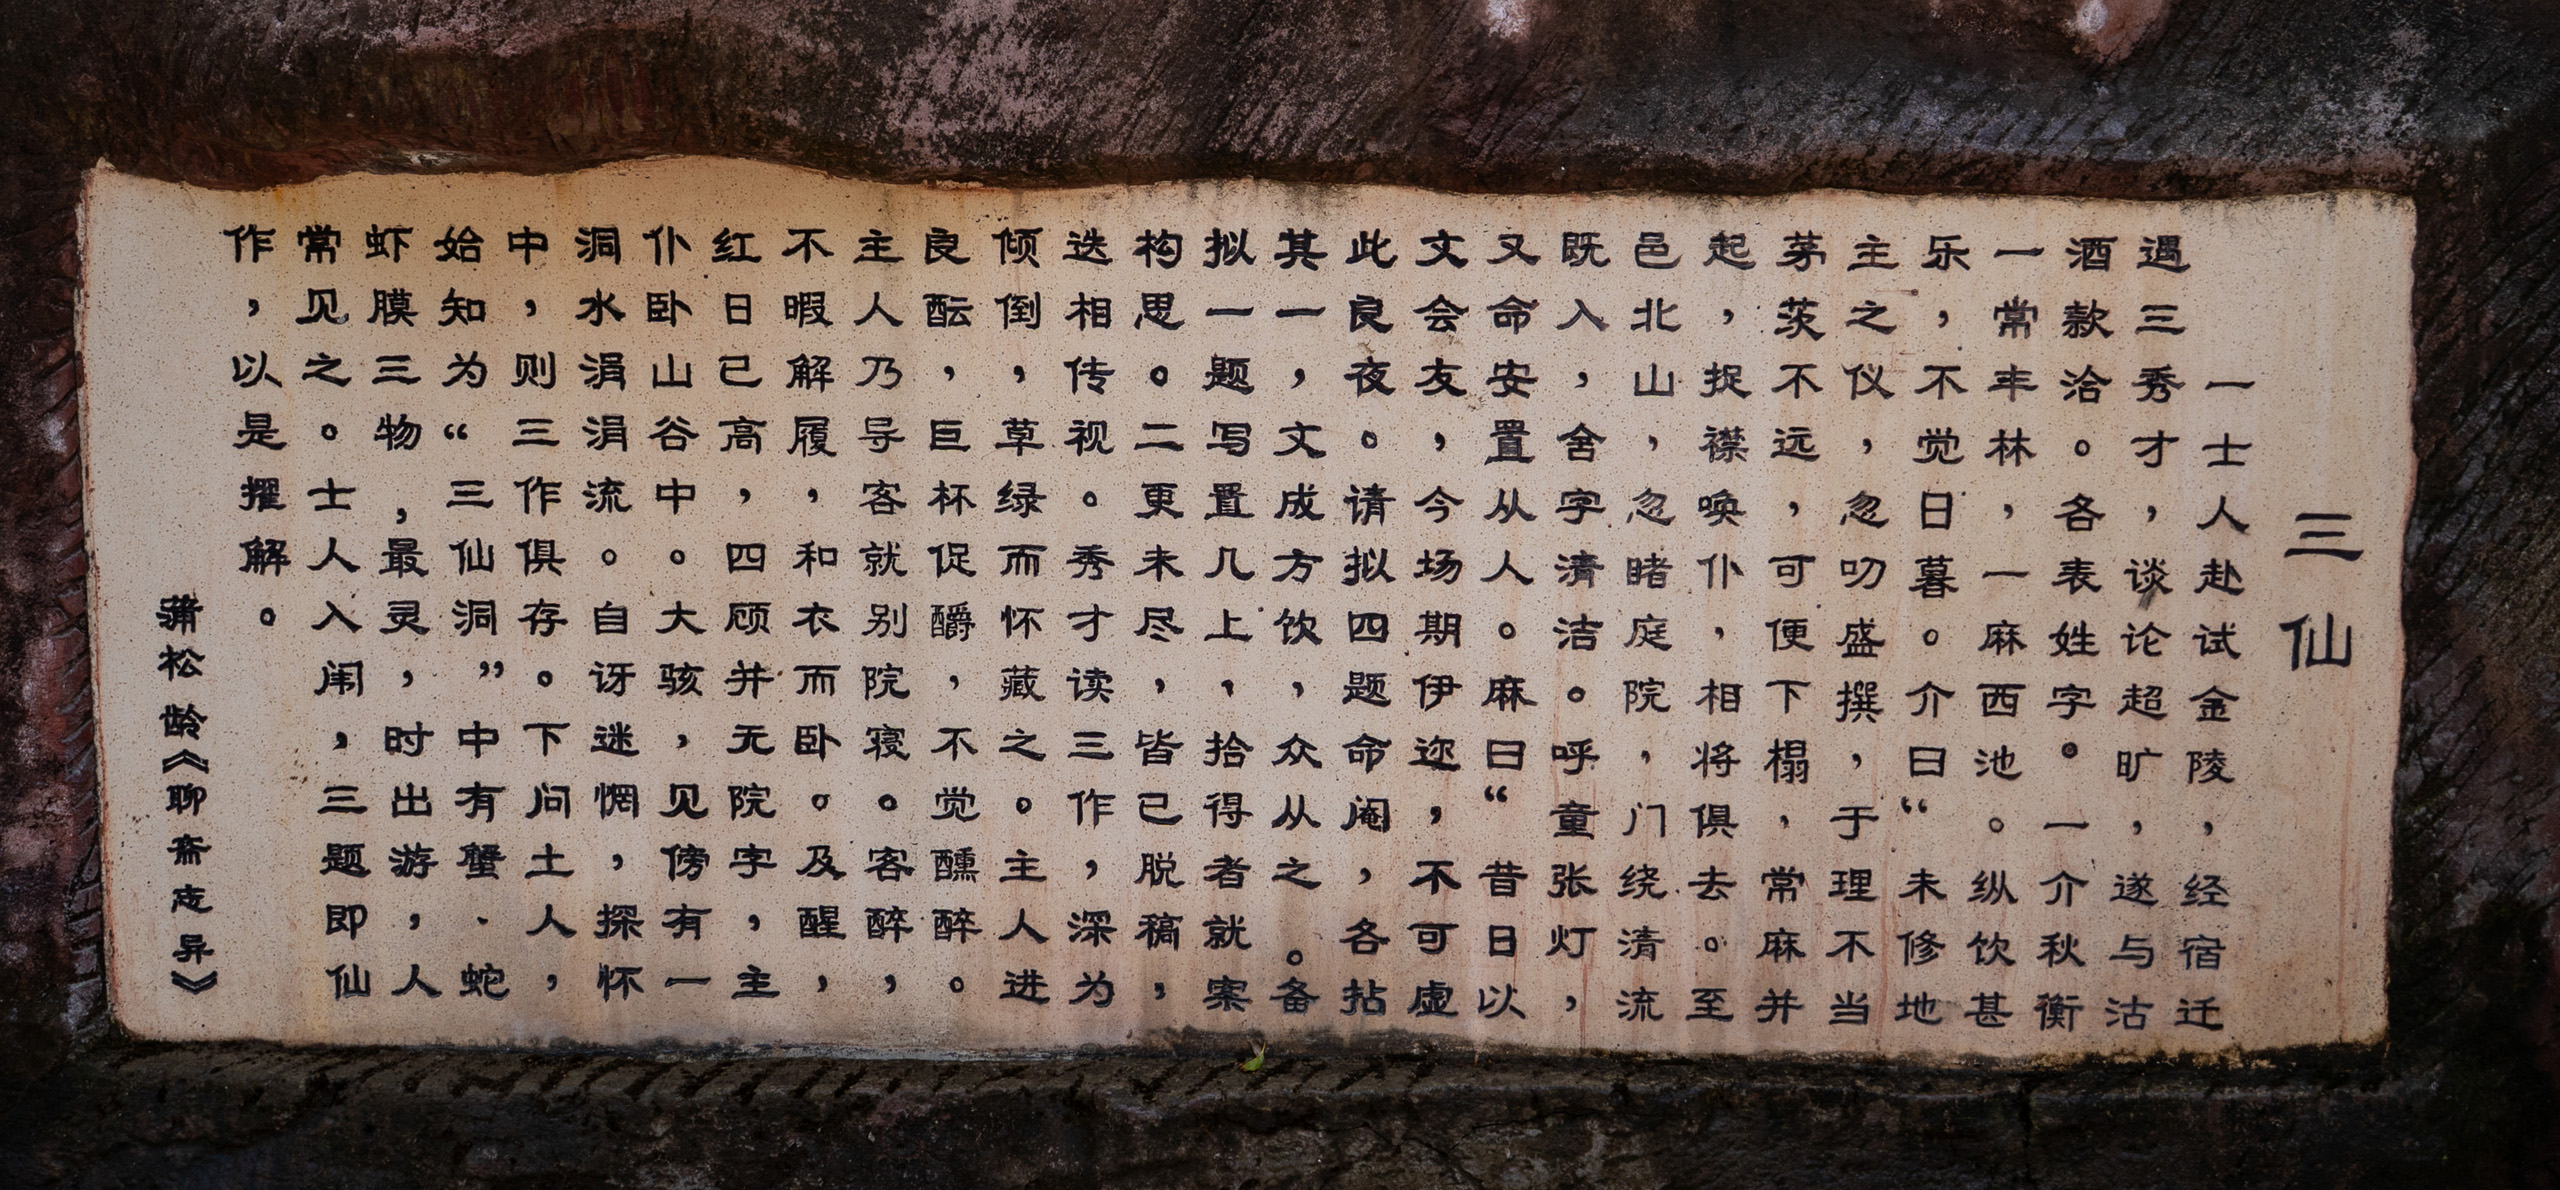 三仙
一士人赴试金陵，经宿迁
遇三秀才，谈论超旷，遂与沽
酒款洽。各表姓字。一介秋衡
一常丰林，一麻西池。纵饮甚
乐，不觉日暮。介曰“未修地
主之仪，忽叨盛撰，于理不当
茅茨不远，可便下榻，常麻并
起，捉襟唤仆，相将俱去。至
邑北山，忽睹庭院，门绕清流
既入，舍字清洁。呼童张灯，
又命安置从人。麻曰“昔日以
文会友，今场期伊迩，不可虚
此良夜。请拟四题命阄，各拈
其一，文成方饮，众从之。备
拟一题写置几上，拾得者就案
构思。二更未尽，皆已脱稿，
迭相传视。秀才读三作，深为
倾倒，草绿而怀藏之。主人进
良酝，巨杯促釂，不觉醺醉。
主人乃导客就别院寝。客醉，
不暇解履，和衣而卧。及醒，
红日已高，四顾并无院字，主
仆卧山谷中。大骇，见傍有一
洞水涓涓流。自讶迷惘，探怀
中，则三作俱存。下问土人，
始知为“三仙洞”中有蟹·蛇
虾膜三物，最灵，时出游，人
常见之。士人入闱，三题即仙
作，以是擢解。
蒲松龄《聊斋志异》